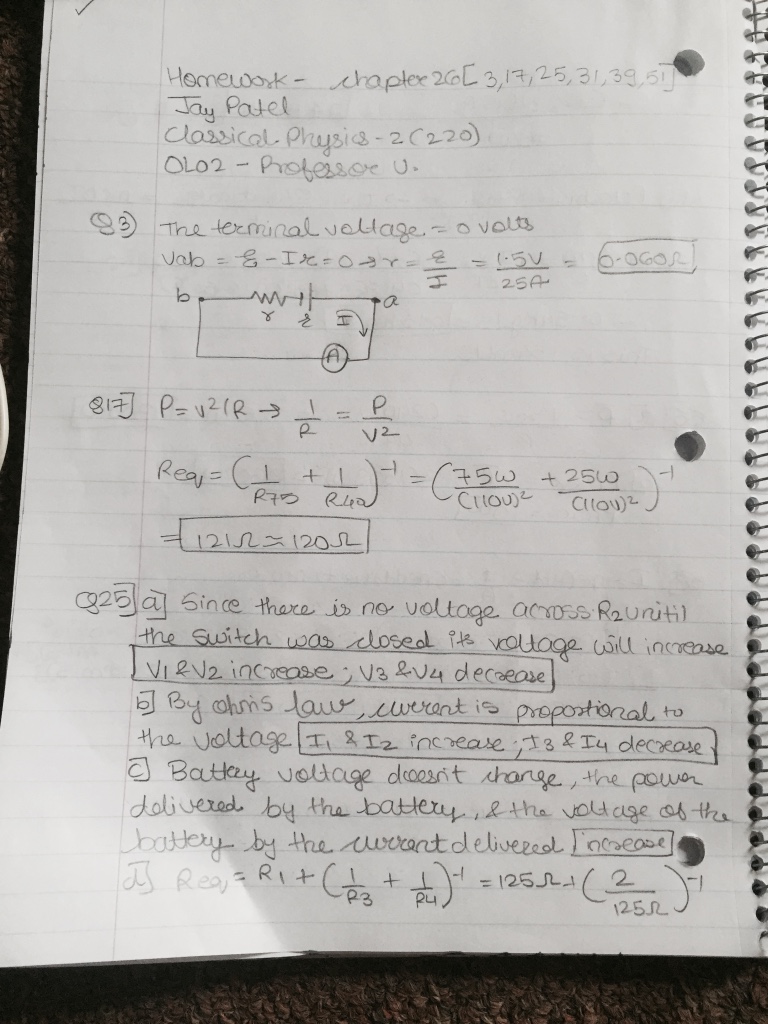 Homework - chapter 26[3,17,25,31,39,51]
Jay Patel
Classical Physics - 2 (220)
OL02 - Professor U.
Q3) The terminal voltage = 0 volts
Vab = ℰ - Ir = 0 → r = ℰ/I = 1.5V/25A = 0.060Ω
b r ℰ I a
A
Q17] P = V²/R → 1/R = P/V²
Req = (1/R75 + 1/R40)⁻¹ = (75W/(110V)² + 25W/(110V)²)⁻¹
= 121Ω ≈ 120Ω
Q25] a] Since there is no voltage across R2 unitil
the switch was closed its voltage will increase
V1 & V2 increase ; V3 & V4 decrease
b] By ohms law, current is proportional to
the voltage I1 & I2 increase ; I3 & I4 decrease
c] Battey voltage doesn't change, the power
delivered by the battery, & the voltage of the
battery by the current delivered increase
d] Req = R1 + (1/R3 + 1/R4)⁻¹ = 125Ω + (2/125Ω)⁻¹